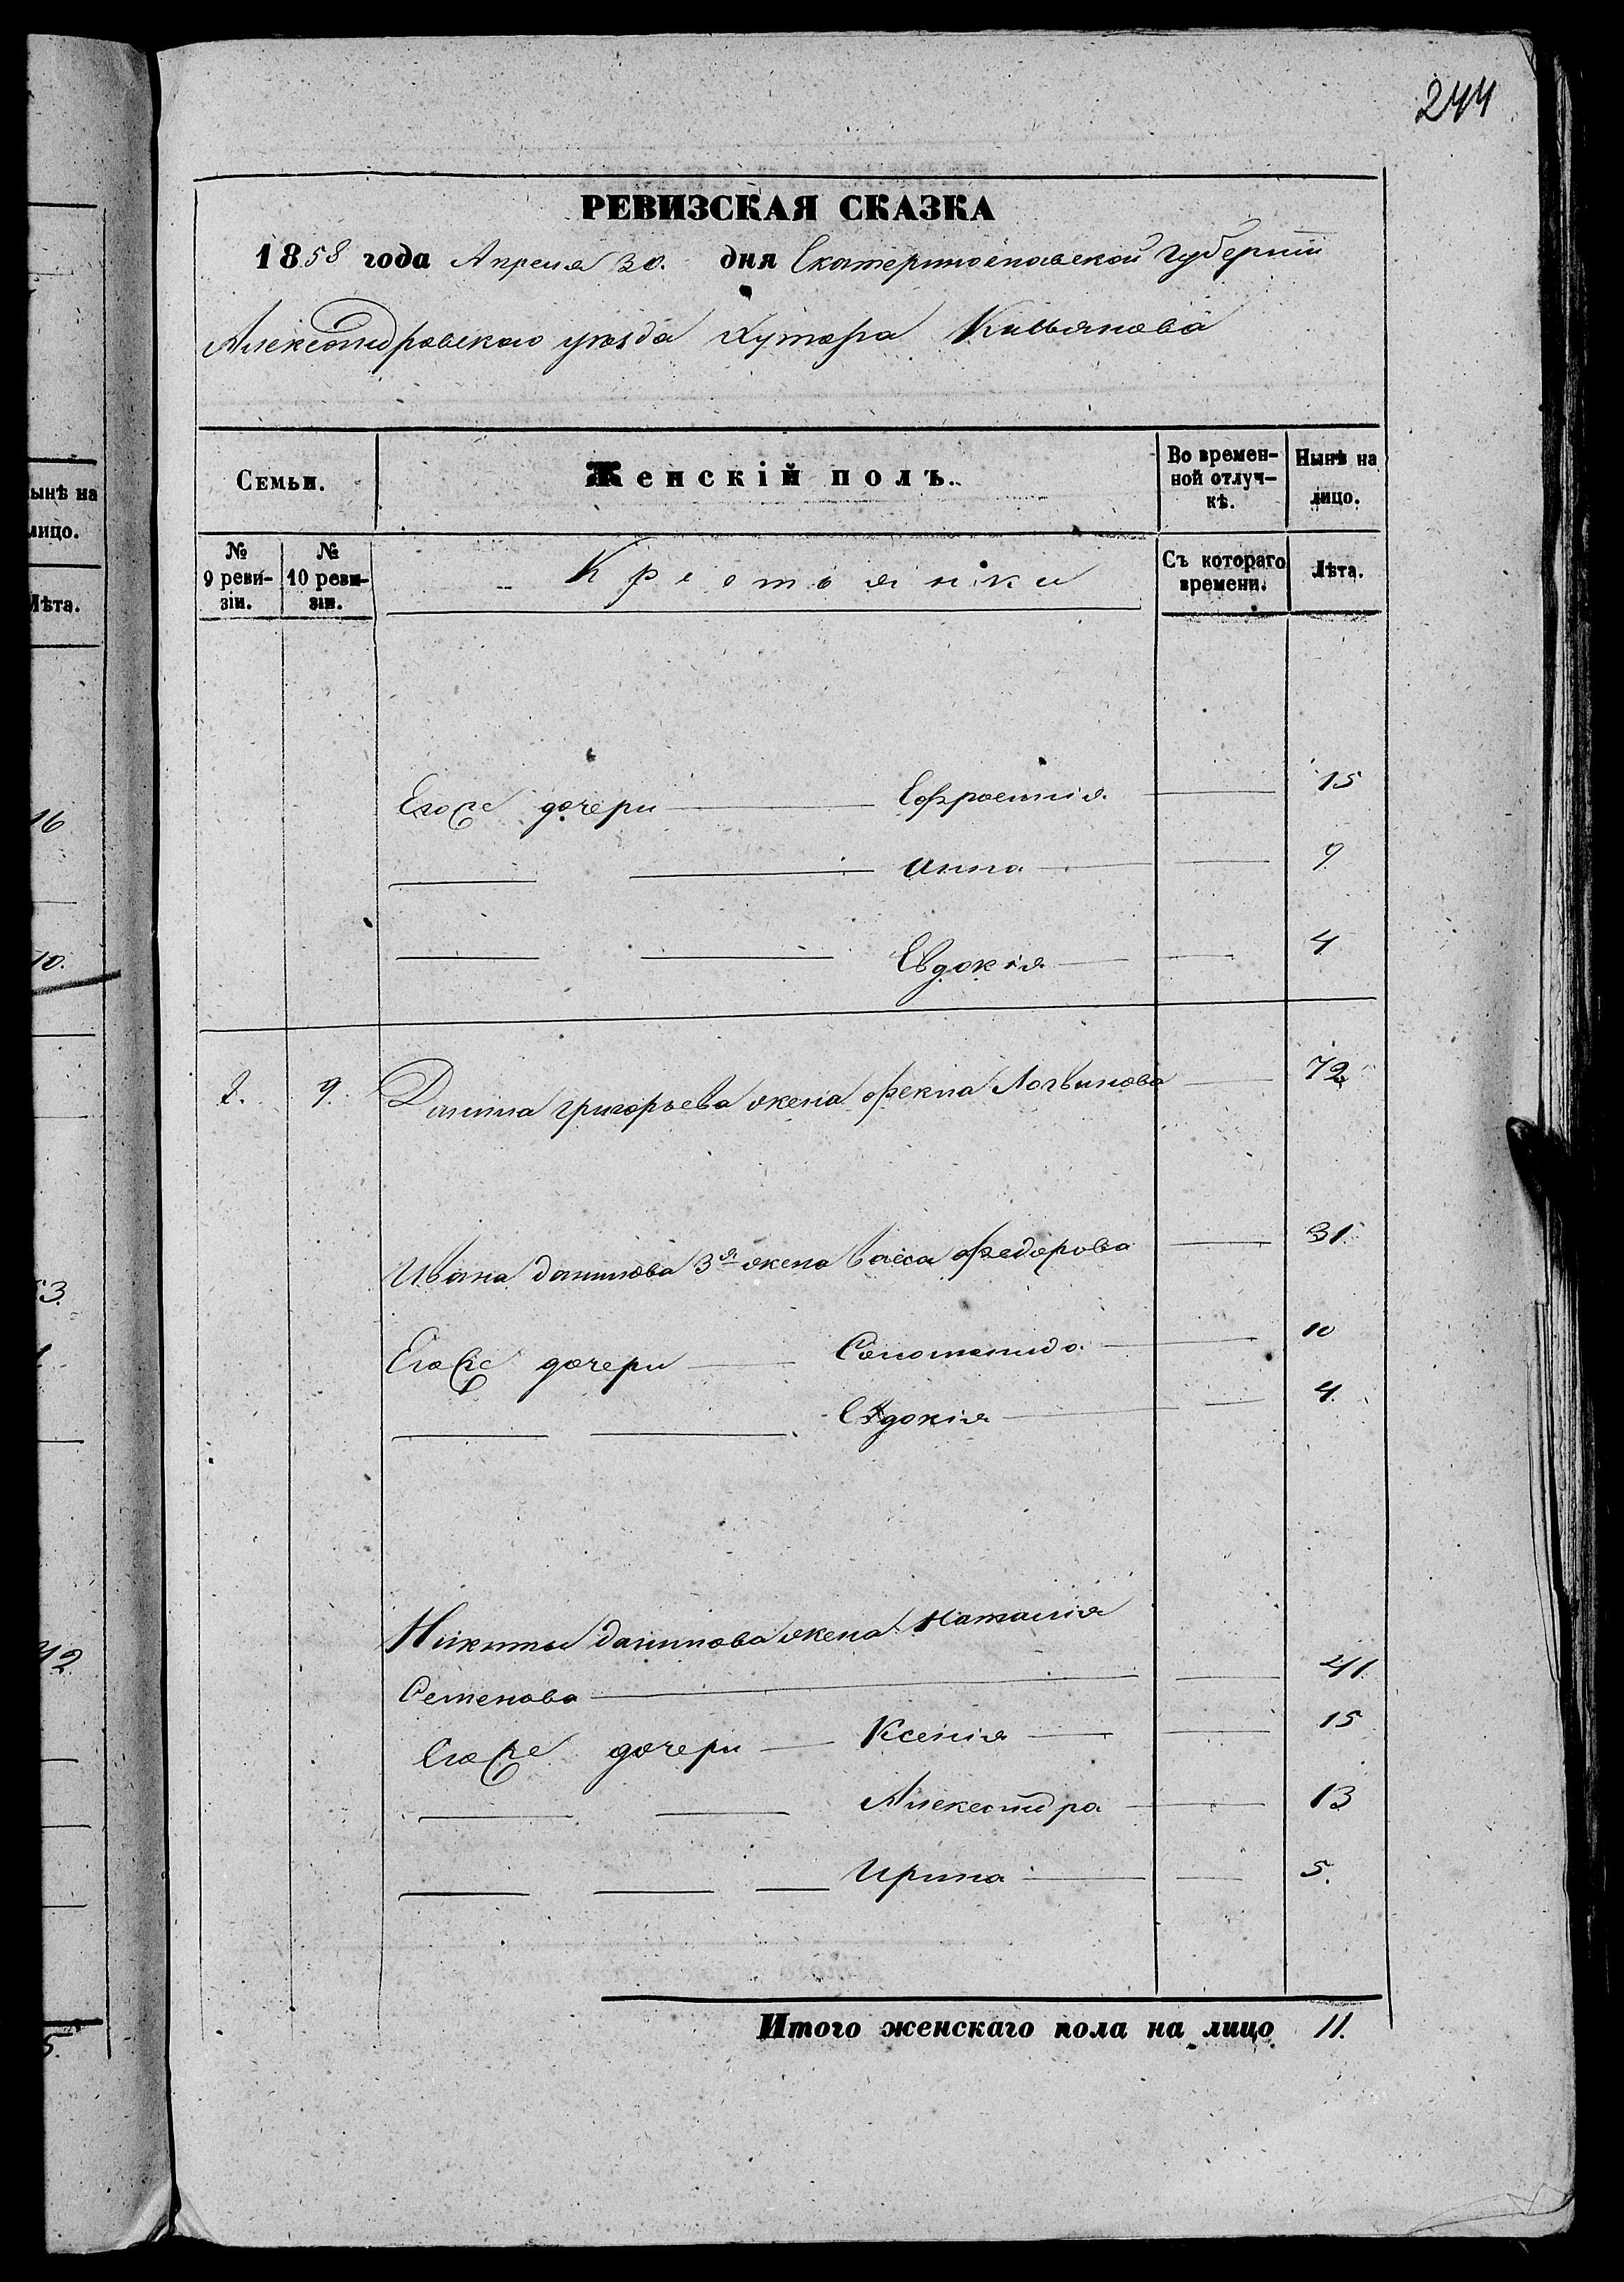 244
РЕВИЗСКАЯ СКАЗКА
1858 года Апреля 30. дня Екатеринославской Губернии
Александровского уезда Хутора Касьянова
Семьи.
Женскій полъ.
Во времен-
ной отлуч-
кѣ.
Нынѣ на
лицо.
№
9 реви-
зіи.
№
10 реви-
зіи.
Крестьянки
Съ котораго
времени.
Лѣта.
Его дочери Ефросинія 15
Анна 9
Евдокія 4
9. Данила Григорьева жена Фекла Логвинова 72
Ивана Данилова 3я жена Васса Федорова 31
Его дочери Соломонида 10
Евдокія 4.
Никиты Данилова жена Наталія
Семенова 41
Его дочери Ксенія 15
Александра 13
Ирина 5.
Итого женскаго пола на лицо 11.
ынѣ на
лицо.
Лѣта.
16
10.
53.
42
5.